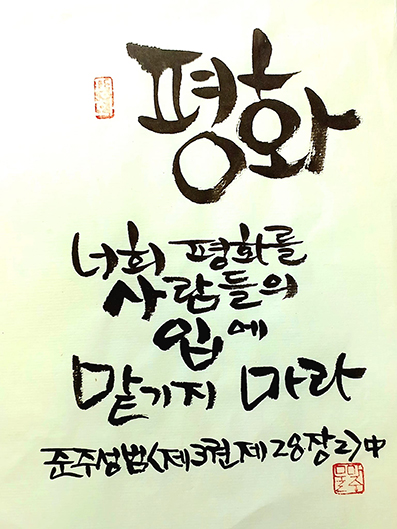 평화
너희 평화를
사람들의
입에
맡기지 마라
준주성범<제3권제28장2>中